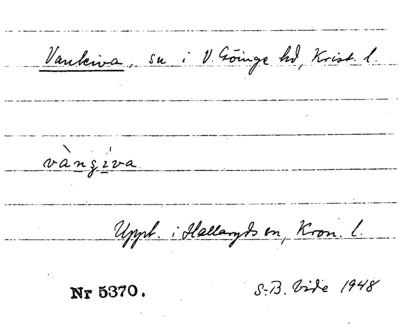 Vankiva, sn i V. Göinge hd, Krist. l.
vàngíva
Uppt. i Hallaryds sn, Kron. l.
Nr 5370.
S.-B. Vide 1948